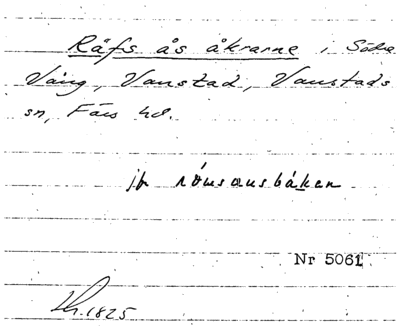 Räfs ås åkrarne i Södra
Vång, Vanstad, Vanstads
sn, Färs hd.
jfr rävsausbáken
Nr 5061
1825